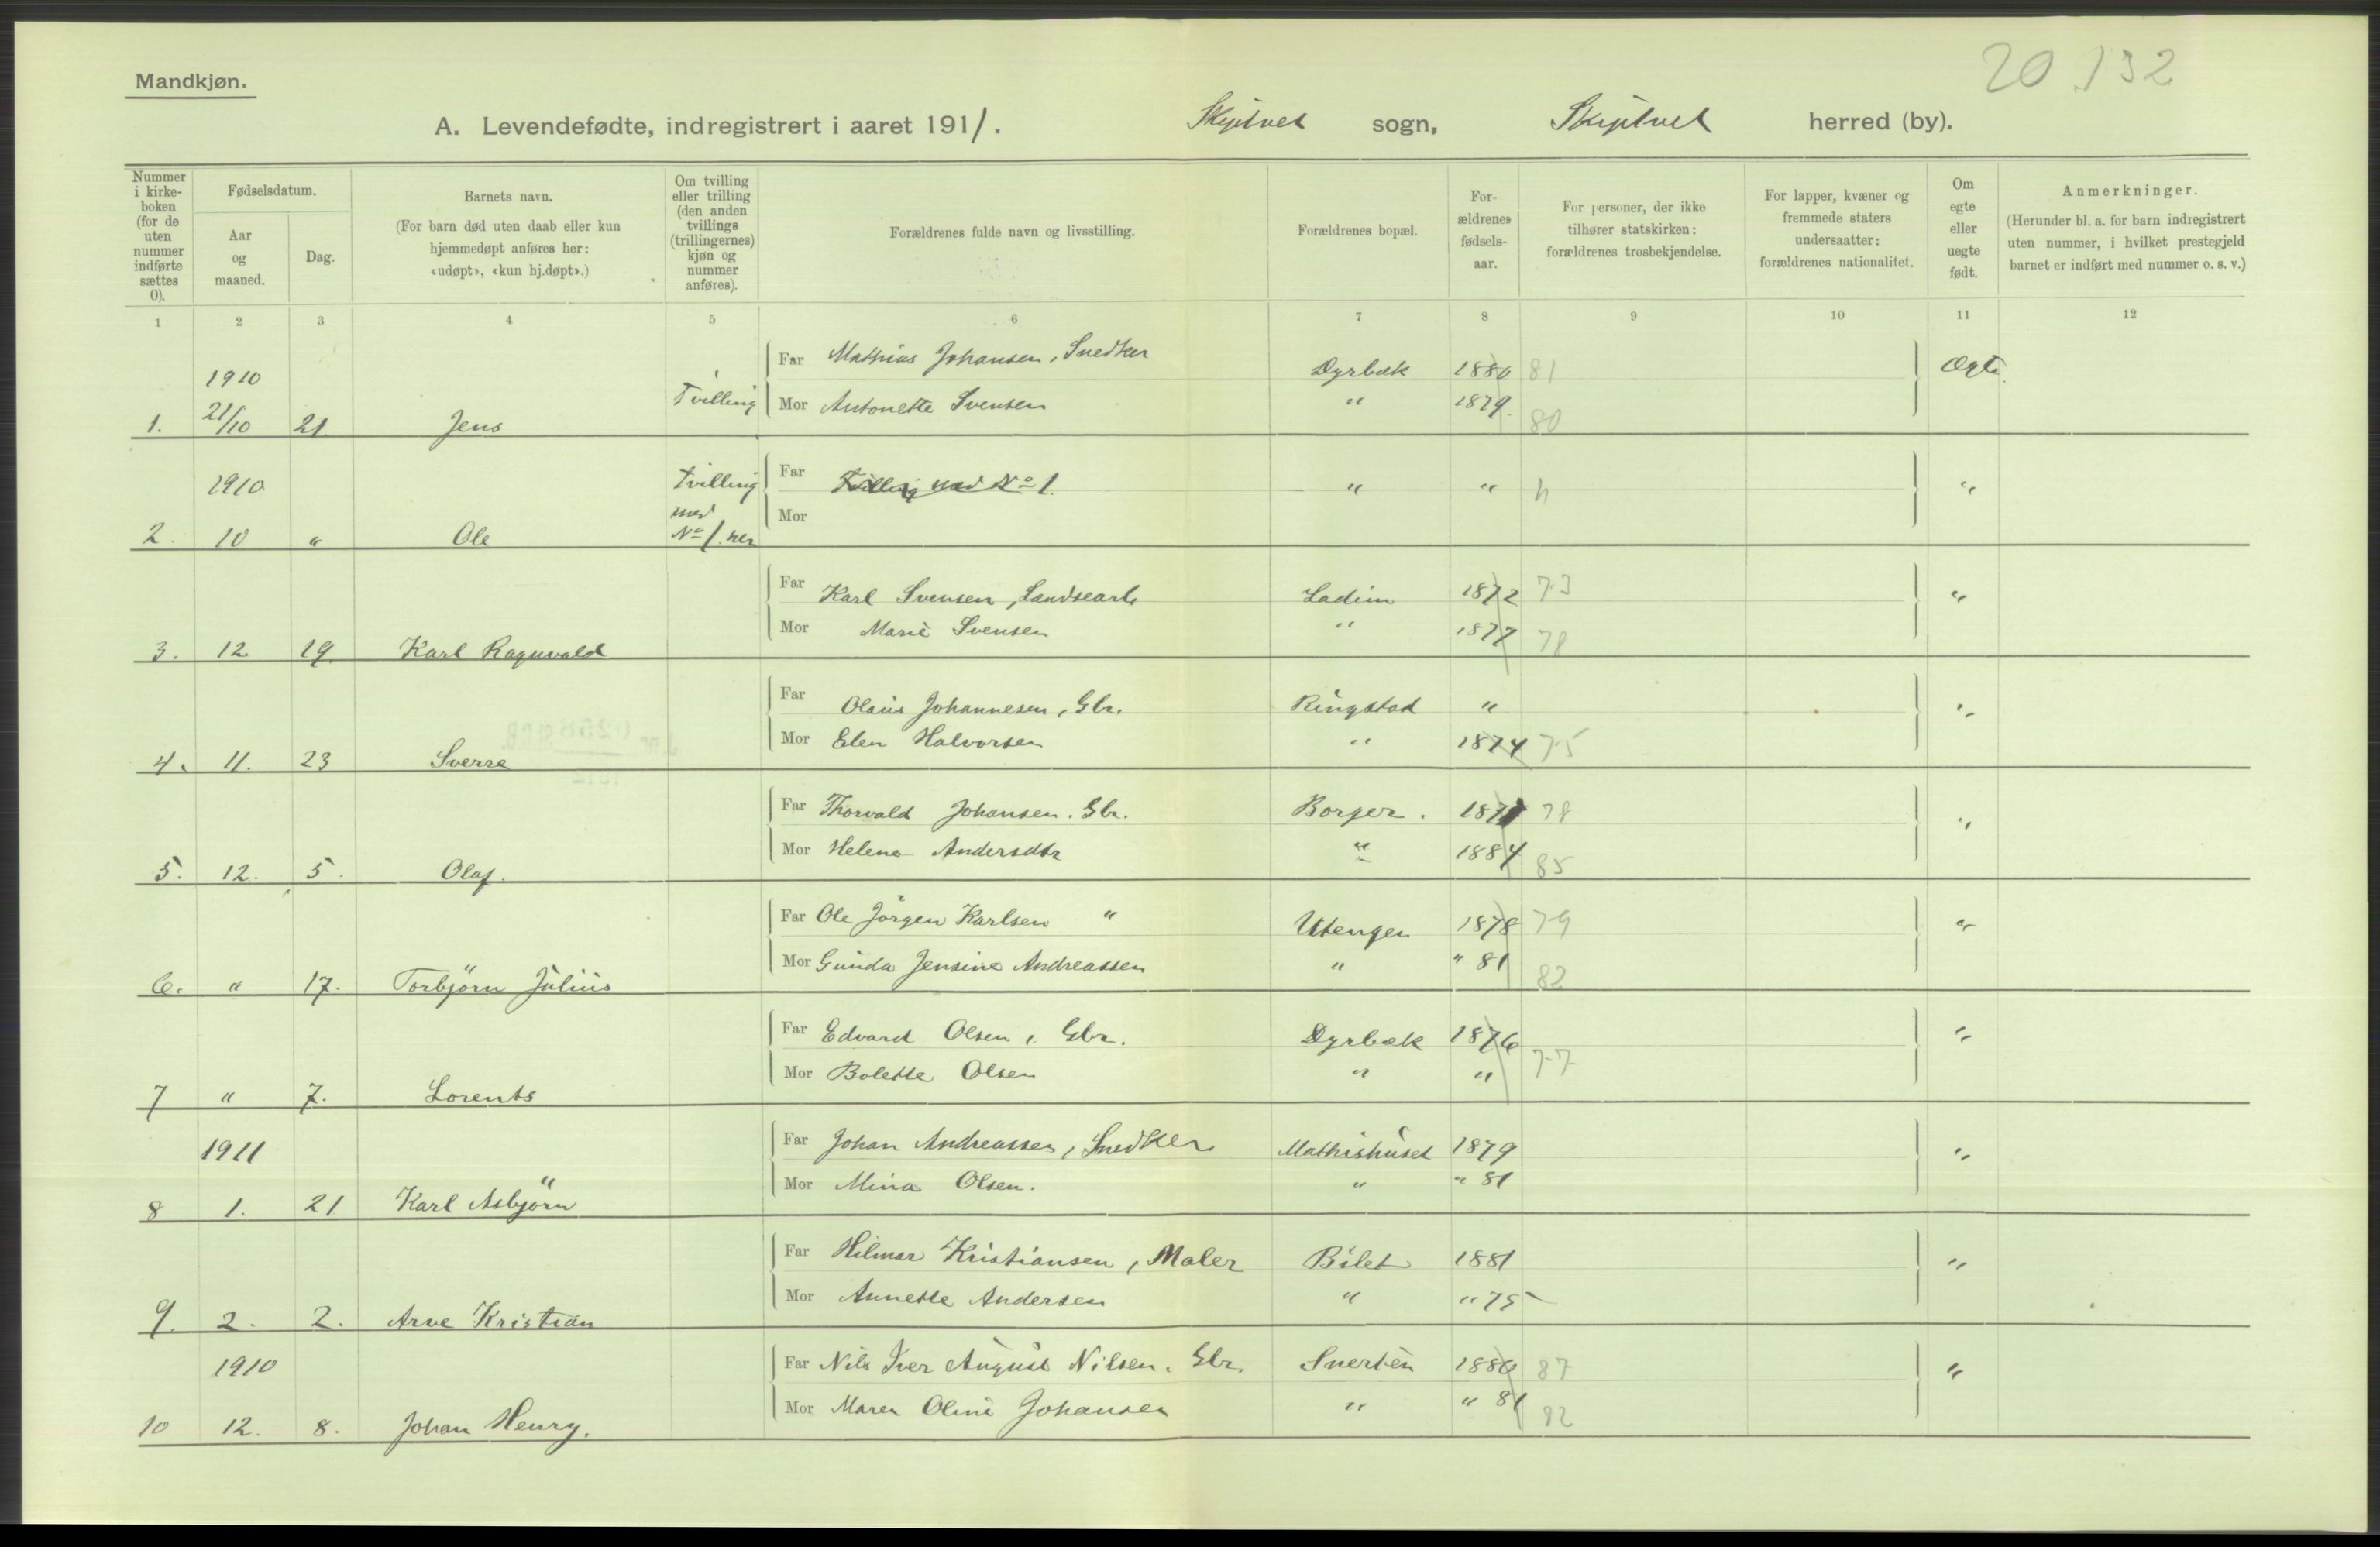 20.132
Mandkjøn.
A. Levendefødte, indregistrert i aaret 1911. Skiptvet sogn, Skiptvet herred (by).
Nummer i kirkeboken (for de uten nummer indførte sættes 0).
Fødselsdatum.
Aar og maaned.
Dag.
Barnets navn.
(For barn død uten daab eller kun hjemmedøpt anføres her: «udøpt», «kun hj.døpt».)
Om tvilling eller trilling (den anden tvillings (trillingernes) kjøn og nummer anføres).
Forældrenes fulde navn og livsstilling.
Forældrenes bopæl.
For-ældrenes fødsels-aar.
For personer, der ikke tilhører statskirken: forældrenes trosbekjendelse.
For lapper, kvæner og fremmede staters undersaatter: forældrenes nationalitet.
Om egte eller uegte født.
Anmerkninger.
(Herunder bl. a. for barn indregistrert uten nummer, i hvilket prestegjeld barnet er indført med nummer o. s. v.)
1 2 3 4 5 6 7 8 9 10 11 12
Far Mathias Johansen, Snedker Dyrbæk 1880 81 Ægte
1910
Tvilling Mor Antonette Svensen " 1879 80
1. 21/10 21. Jens
1910 Tvilling Far Tvilling med No 1. " " "
med Mor
2. 10 " Ole No 1.
Far Karl Svensen, Landsearb Ladim 1872 73 "
Mor Marie Svensen " 1877 78
3. 12. 19. Karl Ragnvald
Far Olaus Johannesen, Gbr. Ringstad " "
Mor Elen Halvorsen " 1874 75
4. 11. 23 Sverre
Far Thorvald Johansen. Gbr. Borger. 1877 78 "
Mor Helene Andersdtr " 1884 85
5. 12. 5. Olaf.
Far Ole Jörgen Karlsen " Utengen 1878 79 "
Mor Gunda Jensine Andreassen " " 81 82
6. " 17. Torbjörn Julius
Far Edvard Olsen, Gbr. Dyrbæk 1876 "
Mor Bolette Olsen " " 77
7 " 7. Lorents
1911 Far Johan Andreassen, Snedker Mathishuset 1879 "
Mor Mina Olsen. " " 81
8 1. 21 Karl Asbjörn
Far Hilmar Kristiansen, Maler Bilet 1881 "
Mor Annette Andersen " " 75
9. 2. 2. Arve Kristian
1910 Far Nils Iver August Nilsen. Gbr. 1880 87 "
Mor Maren Oline Johansen " " 81 82
10 12. 8. Johan Henry.